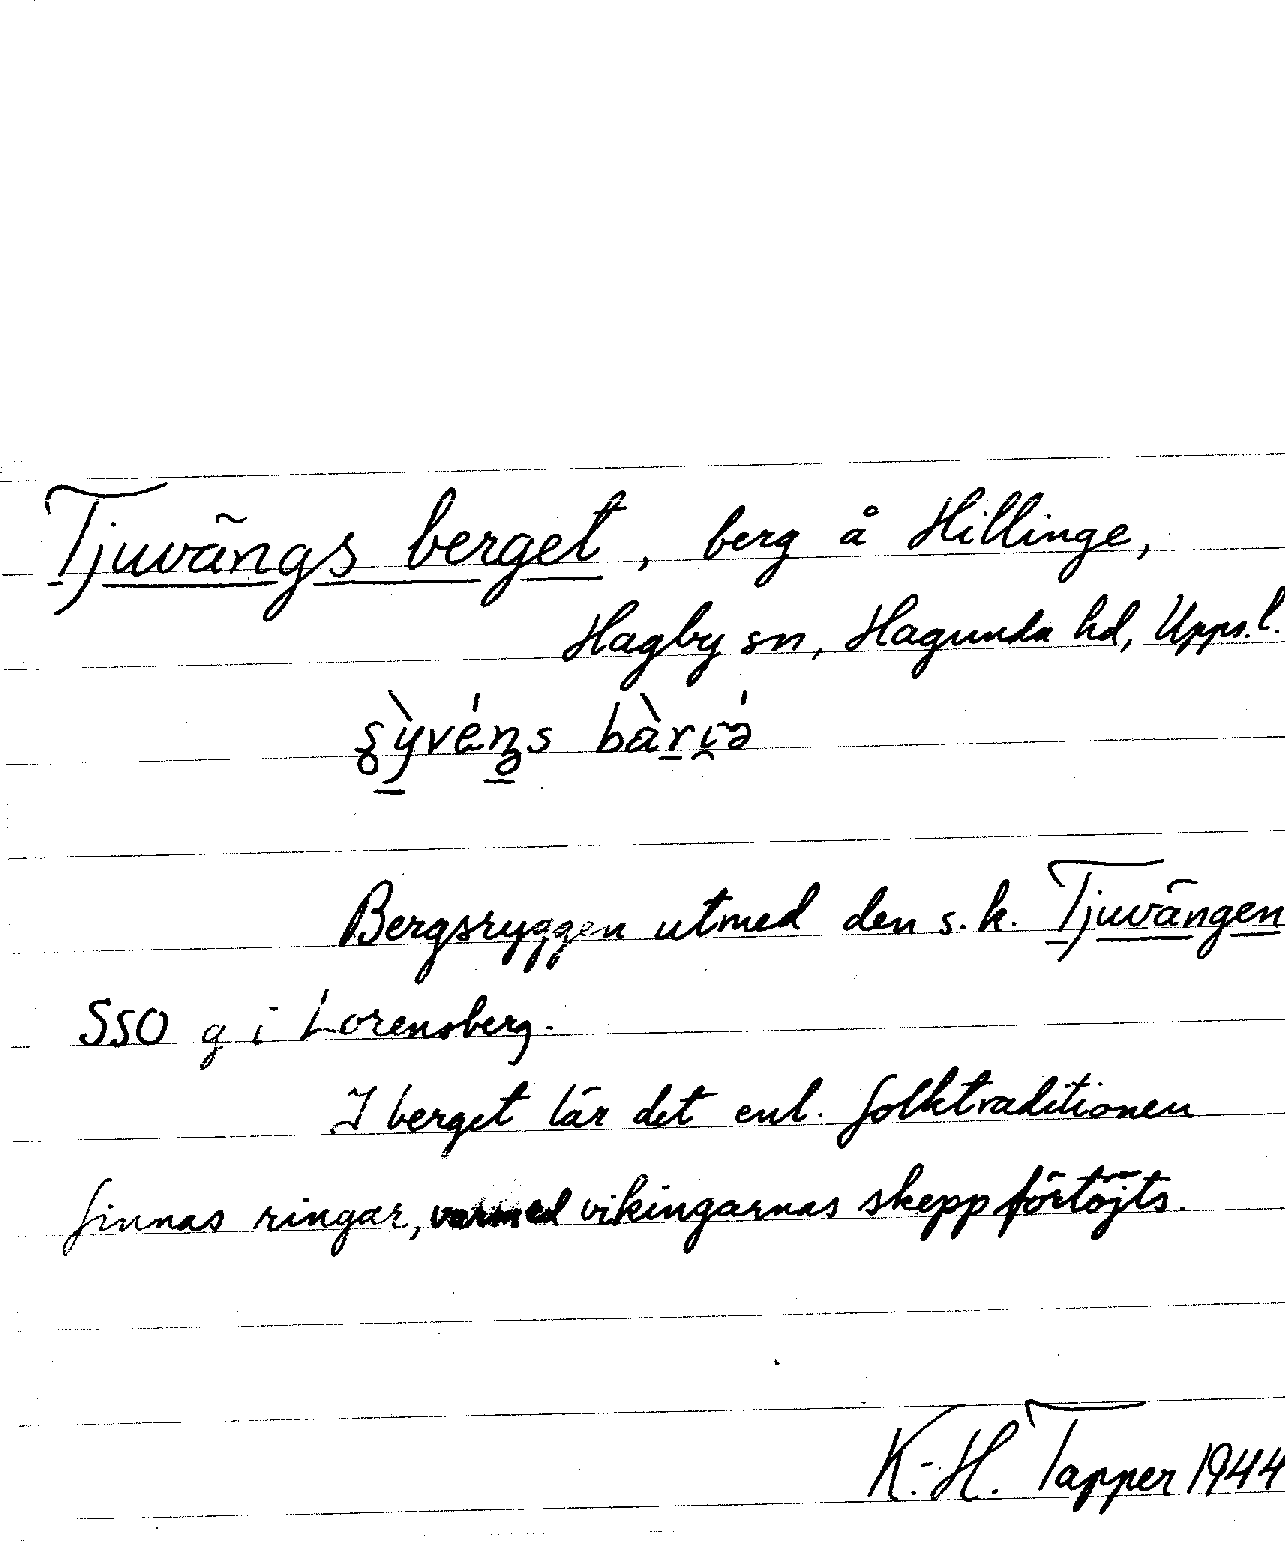 Tjuvängs berget, berg å Hillinge,
Hagby sn, Hagunda hd, Upps.l.
Bergsryggen utmed den s.k. Tjuvängen
SSO g i Lorensberg.
I berget lär det enl. folktraditionen
finnas ringar, varmed vikingarnas skepp förtöjts.
K.-H. Tapper 1944